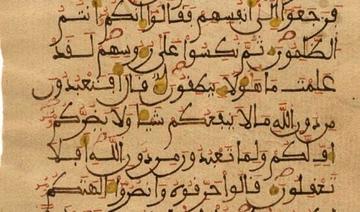 فرجعوا الى انفسهم فقالوا انكم انتم
الظلمون ثم نكسوا على روسهم لقد
علمت ما هولا ينطقون قال افتعبدون
من دون الله ما لا ينفعكم شيا ولا يضركم
اف لكم ولما تعبدون من دون الله افلا
تعقلون قالوا حرقوه وانصروا الهتكم